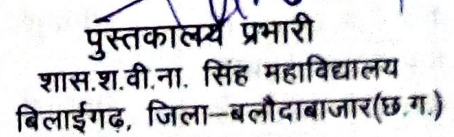 पुस्तकालय प्रभारी
शास.श.वी.ना. सिंह महाविद्यालय
बिलाईगढ़, जिला–बलौदाबाजार(छ.ग.)